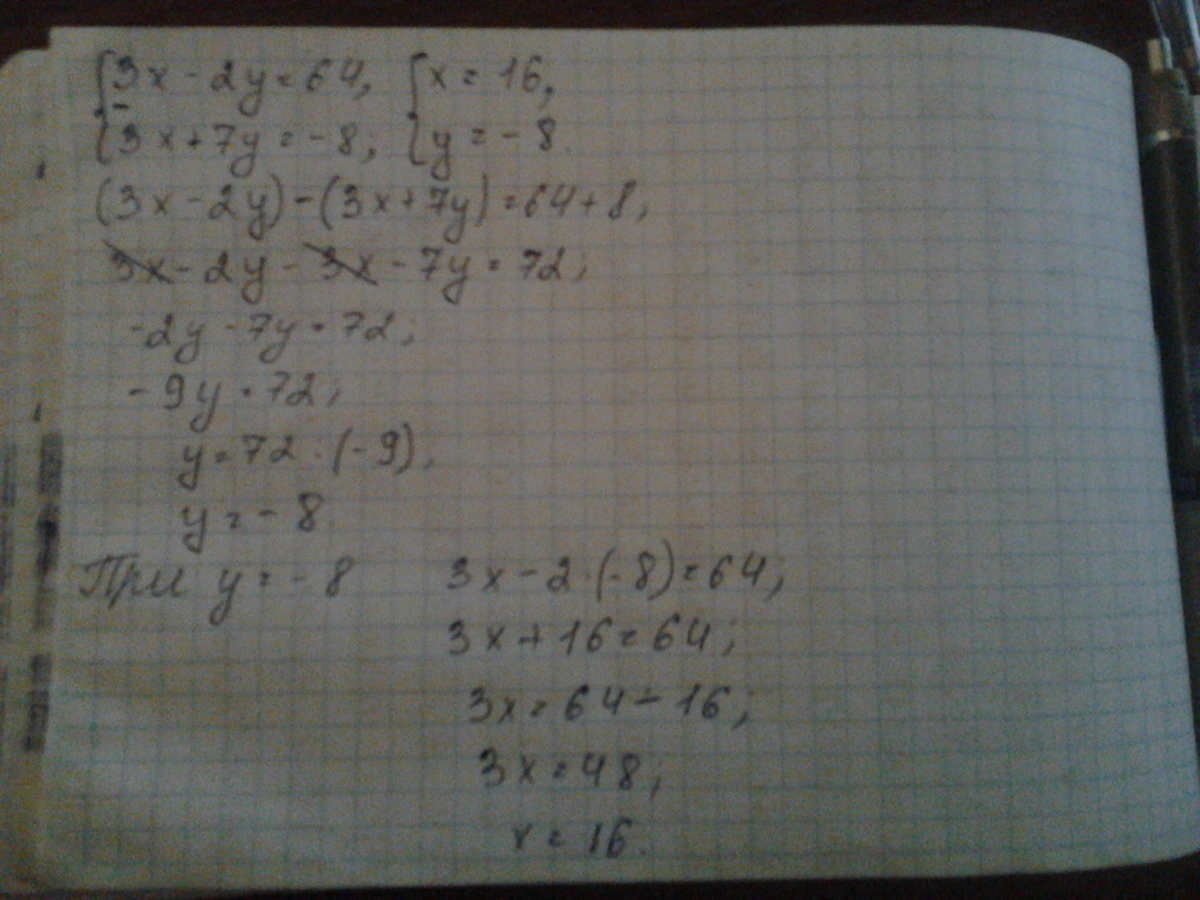 {3x - 2y = 64, {x = 16,
-
{3x + 7y = -8; {y = -8.
(3x - 2y) - (3x + 7y) = 64 + 8;
3x - 2y - 3x - 7y = 72;
-2y - 7y = 72;
-9y = 72;
y = 72 : (-9);
y = -8.
При y = -8 3x - 2 · (-8) = 64;
3x + 16 = 64;
3x = 64 - 16;
3x = 48;
x = 16.